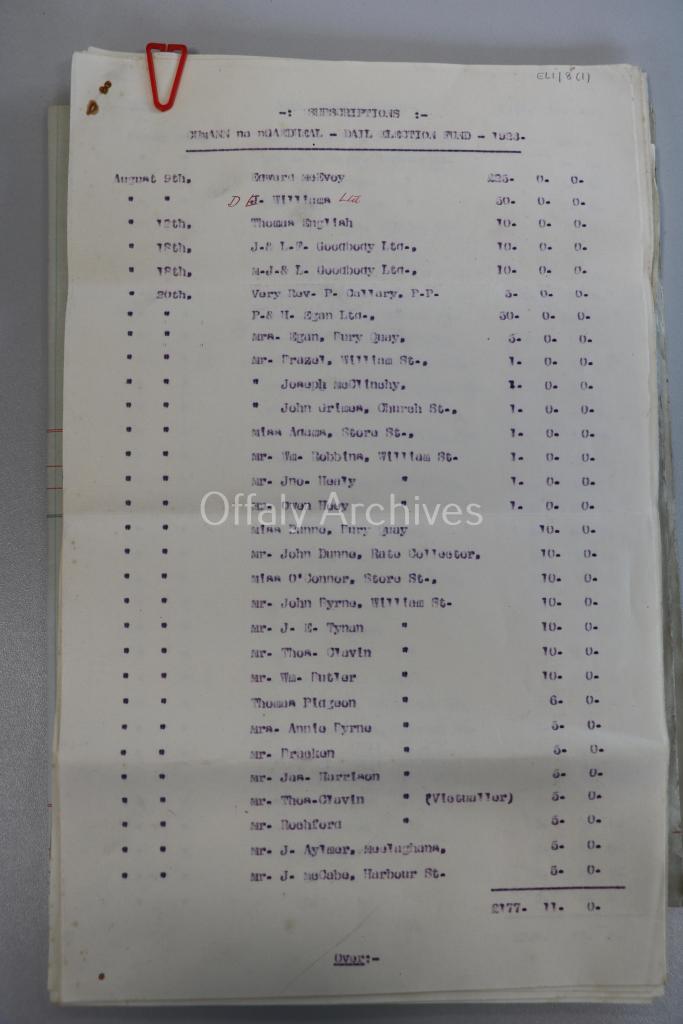 EL1/8(1)
-: SUBSCRIPTIONS :-
CUMANN no nGAEDHEAL - DAIL ELECTION FUND - 1923-
August 9th, Edward McEvoy £25- 0- 0-
" " D E J- Williams Ltd 50- 0- 0-
" 12th, Thomas English 10- 0- 0-
" 18th, J-& L-F- Goodbody Ltd-, 10- 0- 0-
" 18th, M-J-& L- Goodbody Ltd-, 10- 0- 0-
" 20th, Very Rev- P- Callary, P-P- 5- 0- 0-
" " P-& H- Egan Ltd-, 50- 0- 0-
" " Mrs- Egan, Bury Quay, 5- 0- 0-
" " Mr- Frazel, William St-, 1- 0- 0-
" " " Joseph McGlinchy, 1- 0- 0-
" " " John Grimes, Church St-, 1- 0- 0-
" " Miss Adams, Store St-, 1- 0- 0-
" " Mr- Wm- Robbins, William St- 1- 0- 0-
" " Mr- Jno- Healy " 1- 0- 0-
" " Mr- Owen Hoey " 1- 0- 0-
Offaly Archives
" " Miss Dunne, Bury Quay 10- 0-
" " Mr- John Dunne, Rate Collector, 10- 0-
" " Miss O'Connor, Store St-, 10- 0-
" " Mr- John Byrne, William St- 10- 0-
" " Mr- J- E- Tynan " 10- 0-
" " Mr- Thos- Clavin " 10- 0-
" " Mr- Wm- Butler " 10- 0-
" " Thomas Pidgeon " 6- 0-
" " Mrs- Annie Byrne " 5- 0-
" " Mr- Bracken " 5- 0-
" " Mr- Jas- Harrison " 5- 0-
" " Mr- Thos-Clavin " (Victualler) 5- 0-
" " Mr- Rochford " 5- 0-
" " Mr- J- Aylmer, Meelaghans, 5- 0-
" " Mr- J- McCabe, Harbour St- 5- 0-
£177- 11- 0-
Over:-